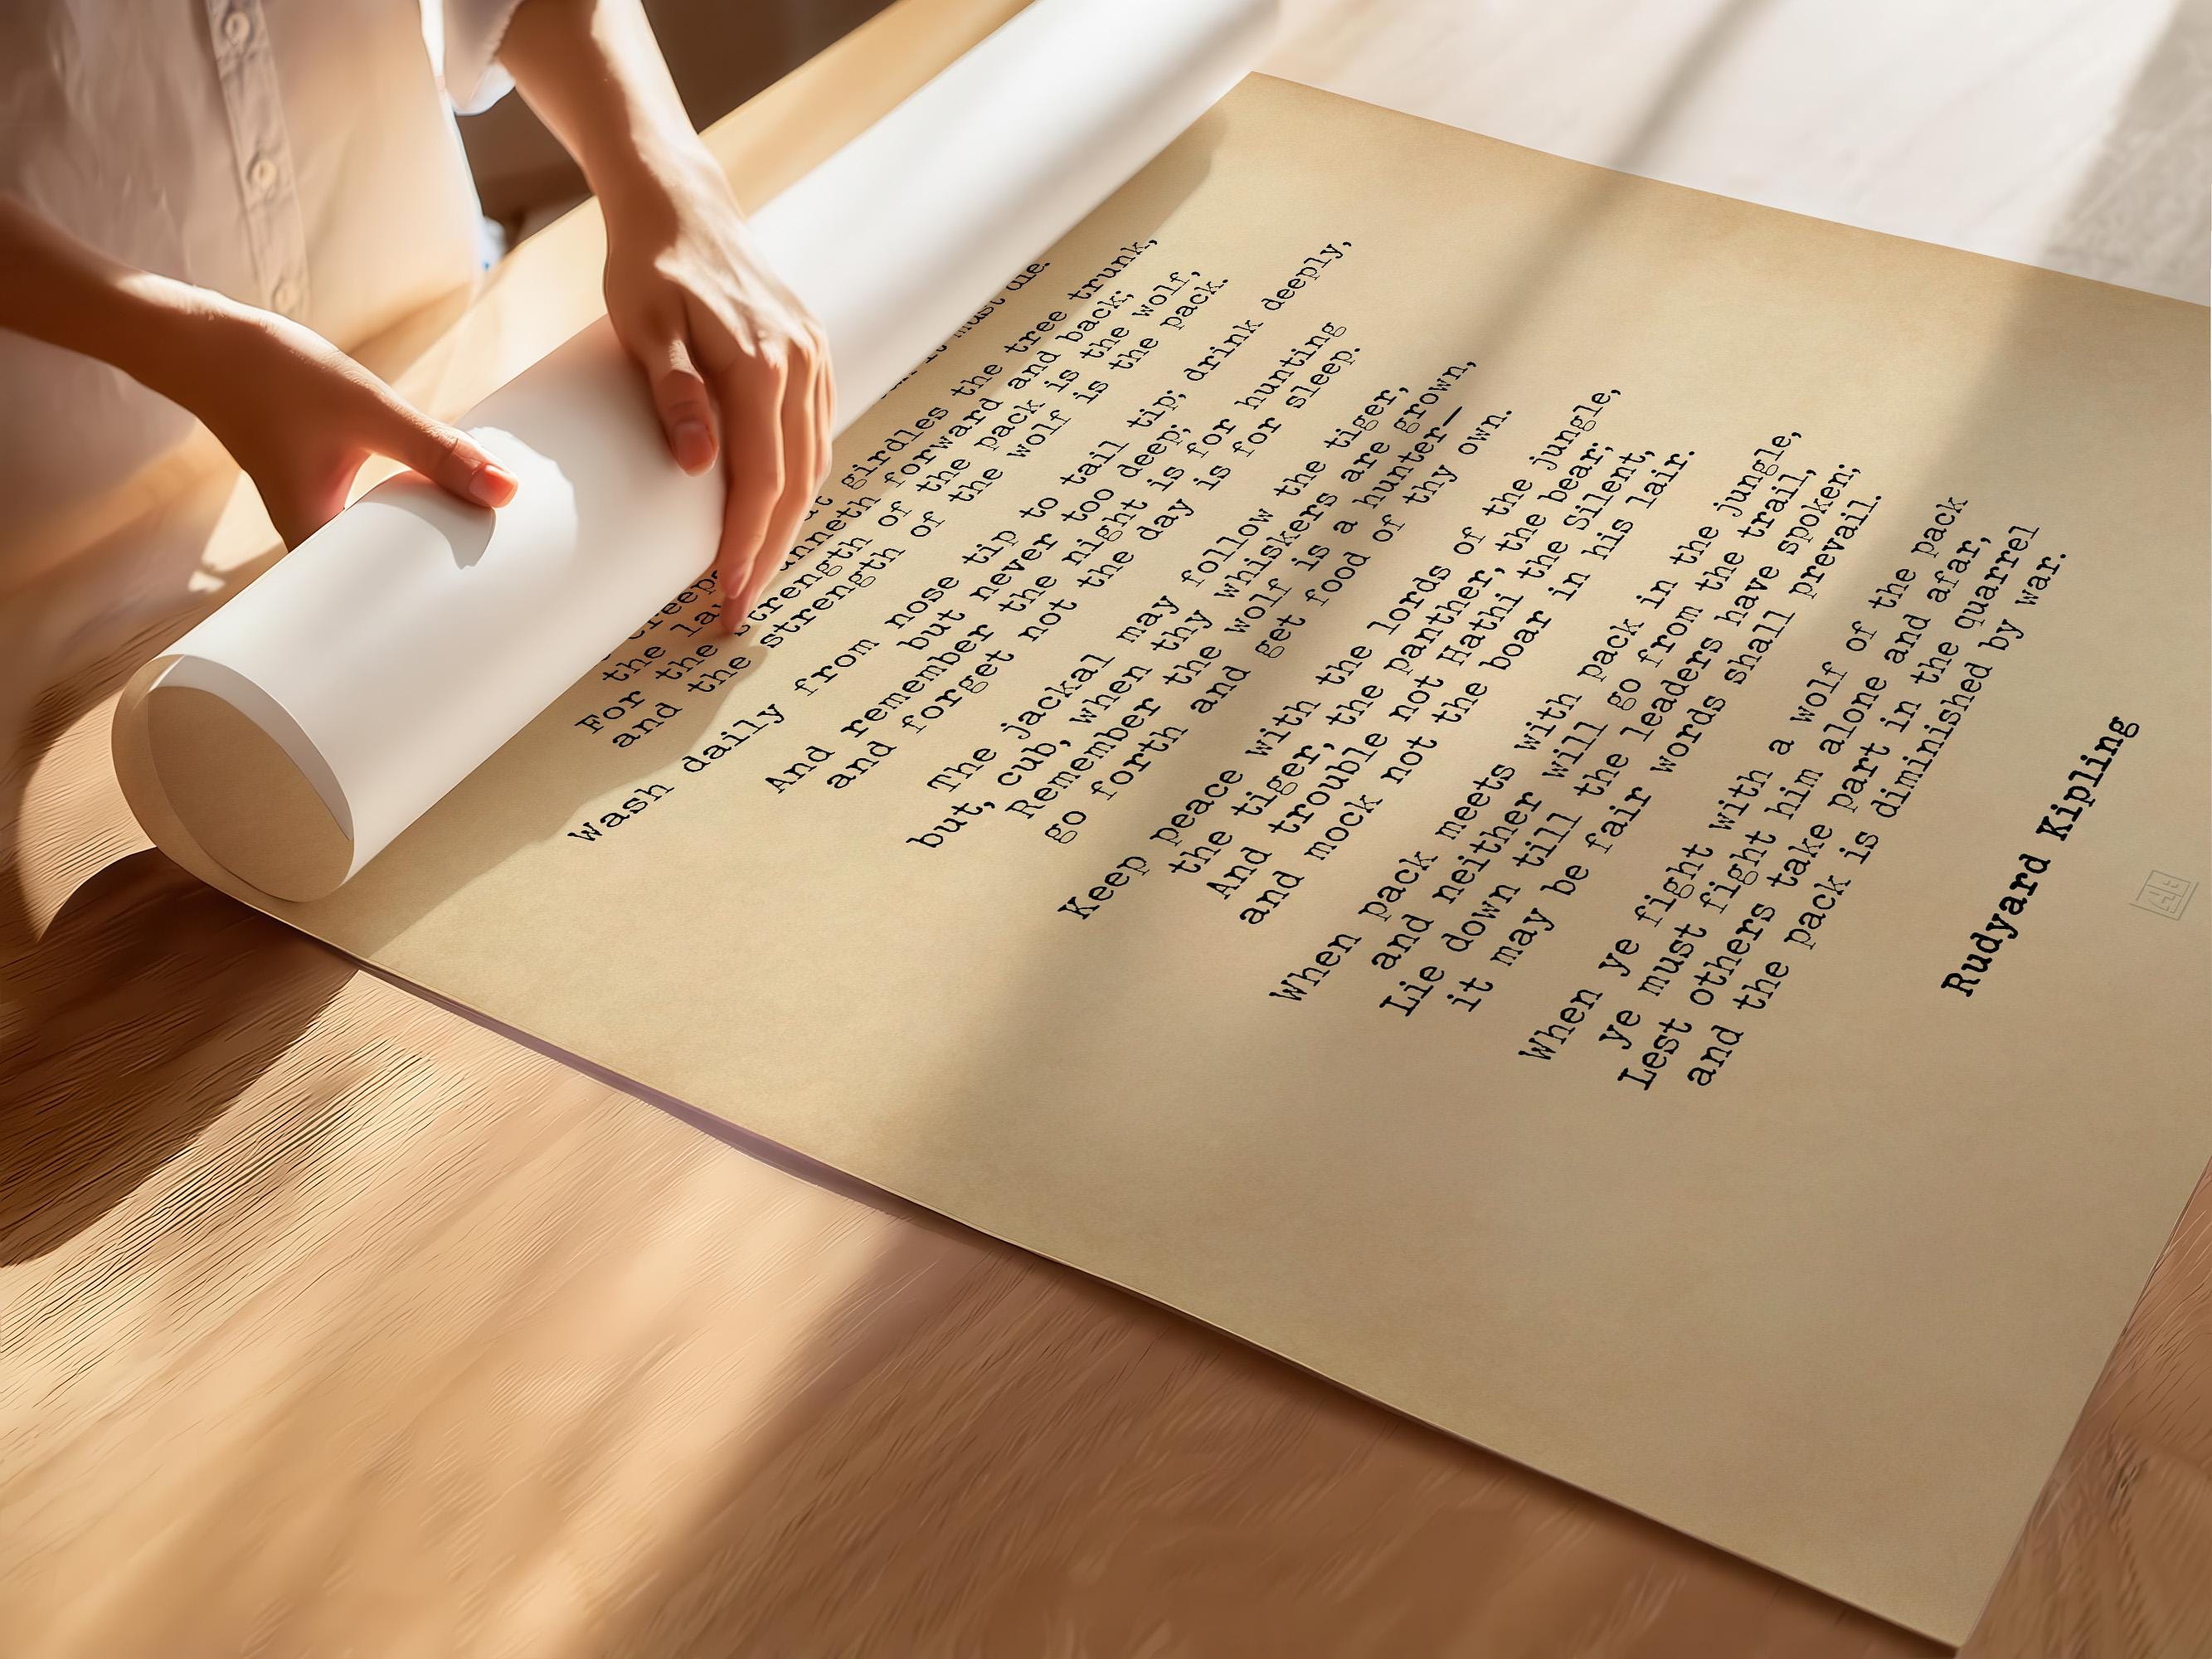 it must die.
creeper girdles the tree trunk,
the la runneth forward and back;
For the strength of the pack is the wolf,
and the strength of the wolf is the pack.
Wash daily from nose tip to tail tip; drink deeply,
but never too deep;
And remember the night is for hunting
and forget not the day is for sleep.
The jackal may follow the tiger,
but, cub, when thy whiskers are grown,
Remember the wolf is a hunter—
go forth and get food of thy own.
Keep peace with the lords of the jungle,
the tiger, the panther, the bear;
And trouble not Hathi the Silent,
and mock not the boar in his lair.
When pack meets with pack in the jungle,
and neither will go from the trail,
Lie down till the leaders have spoken;
it may be fair words shall prevail.
When ye fight with a wolf of the pack
ye must fight him alone and afar,
Lest others take part in the quarrel
and the pack is diminished by war.
Rudyard Kipling